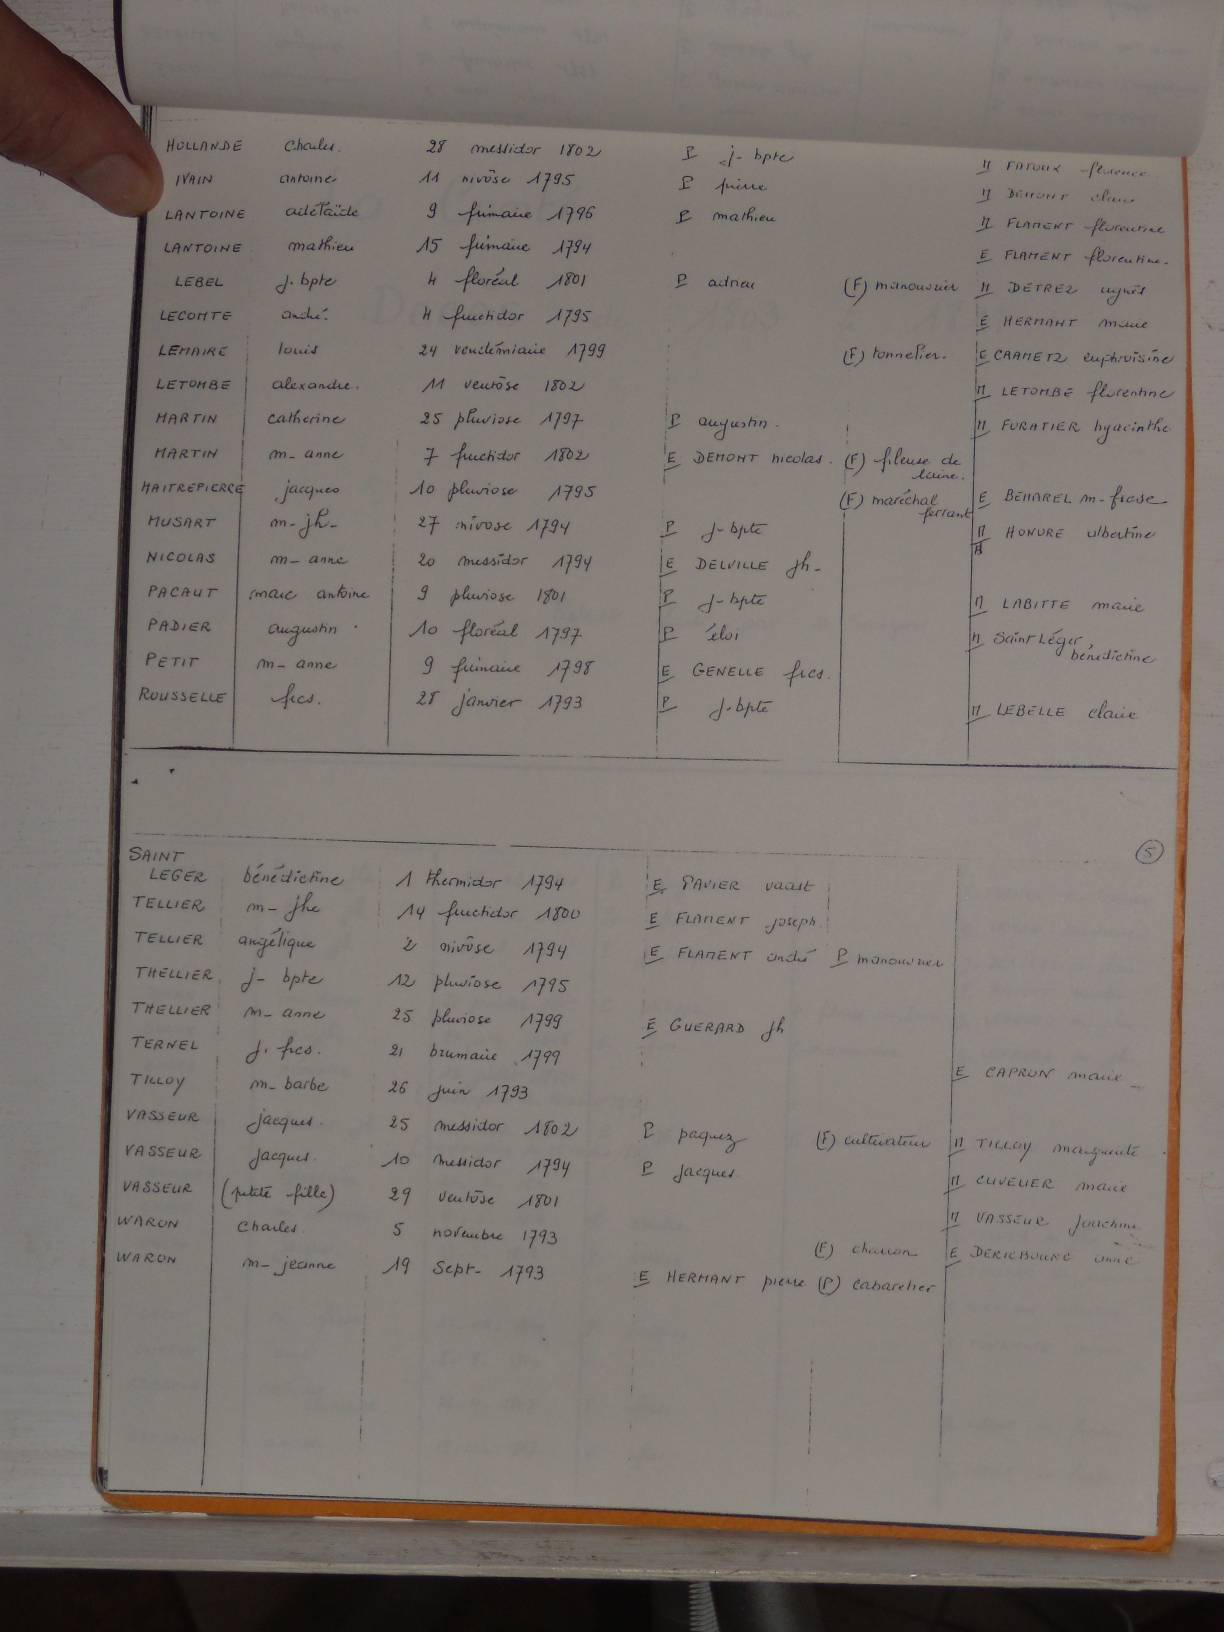 HOLLANDE charles. 28 messidor 1802 P j-bpte M FATOUX florence
IVAIN antoine 11 nivôse 1795 P pierre M DEMONT claire
LANTOINE adélaïde 9 frimaire 1796 P mathieu M FLAMENT florentine
LANTOINE mathieu 15 frimaire 1794 E FLAMENT florentine.
LEBEL j. bpte 4 floréal 1801 P adrien (F) manouvrier M DETREZ agnès
LECOMTE andré. 4 fructidor 1795 E HERMANT marie
LEMAIRE louis 24 vendémiaire 1799 (F) tonnelier. E CRAMETZ euphroisine
LETOMBE alexandre. 11 ventôse 1802 M LETOMBE florentine
MARTIN catherine 25 pluviose 1797 P augustin. M FURATIER hyacinthe
MARTIN m-anne 7 fructidor 1802 E DEMONT nicolas. (F) fileuse de
laine.
MAITREPIERRE jacques 10 pluviose 1795 (F) maréchal E BEHAREL m-frcse
ferrant
MUSART m-jh- 27 nivose 1794 P j-bpte M HONORE albertine
NICOLAS m-anne 20 messidor 1794 E DELVILLE jh-
PACAUT marc antoine 9 pluviose 1801 P j-bpte M LABITTE marie
PADIER augustin. 10 floréal 1797 P éloi M Saint Léger,
bénédictine
PETIT m-anne 9 frimaire 1798 E GENELLE frcs.
ROUSSELLE frcs. 28 janvier 1793 P j.bpte M LEBELLE claire
5
SAINT
LEGER bénédictine 1 thermidor 1794 E vaast
TELLIER m-jhe 14 fructidor 1800 E FLAMENT joseph.
TELLIER angélique 2 nivôse 1794 E FLAMENT andré P manouvrier
THELLIER j-bpte 12 pluviose 1795
THELLIER m-anne 25 pluviose 1799 E GUERARD jh
TERNEL j. frcs. 21 brumaire 1799 E CAPRON marie
TILLOY m-barbe 26 juin 1793
VASSEUR jacques. 25 messidor 1802 P paquez (F) cultivateur M TILLOY marguerite
VASSEUR jacques. 10 messidor 1794 P jacques. M CUVELIER marie
VASSEUR (petite fille) 29 ventôse 1801 M VASSEUR joachine
WARON charles. 5 novembre 1793 (F) charron E DERICBOURG anne
WARON m-jeanne 19 sept- 1793 E HERMANT pierre (P) cabaretier